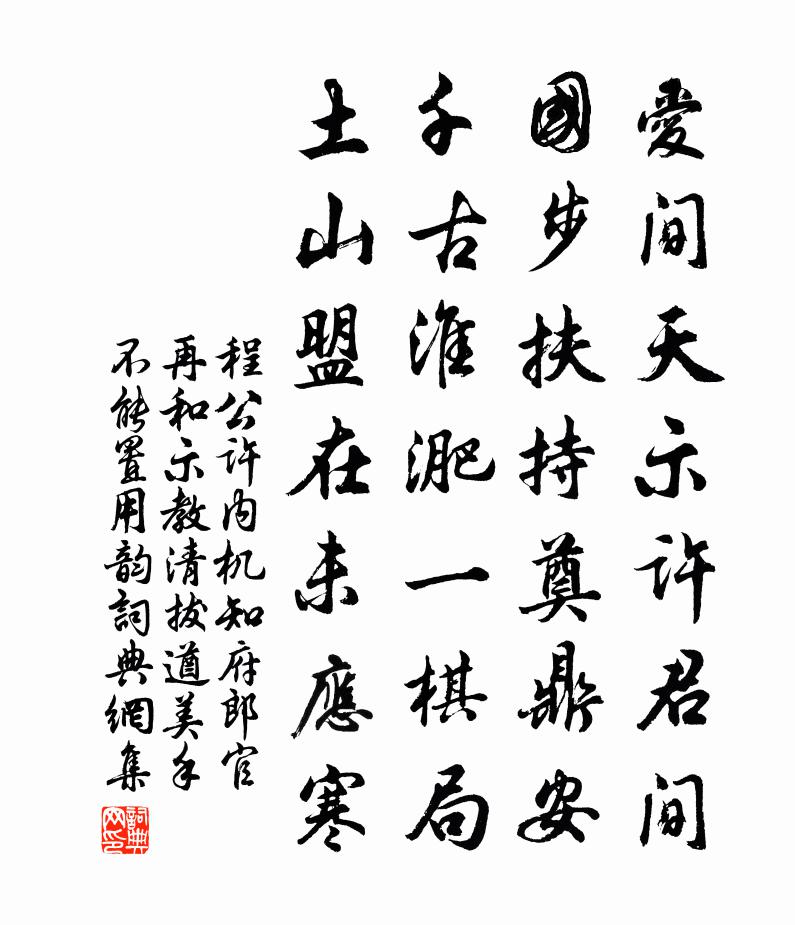 愛閒天示許君閒
國步扶持奠鼎安
千古淮淝一棋局
土山盟在未應寒
程公許内机知府郎官
再和示教清拔遒美手
不能置用韵詞典網集
詞典网印